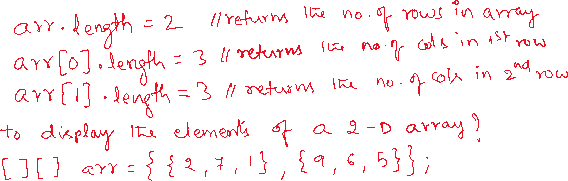 arr.length = 2 //returns the no. of rows in array
arr[0].length = 3 // returns the no. of cols in 1st row
arr[1].length = 3 // returns the no. of cols in 2nd row
to display the elements of a 2-D array?
[][] arr = { {2, 7, 1}, {9, 6, 5}};